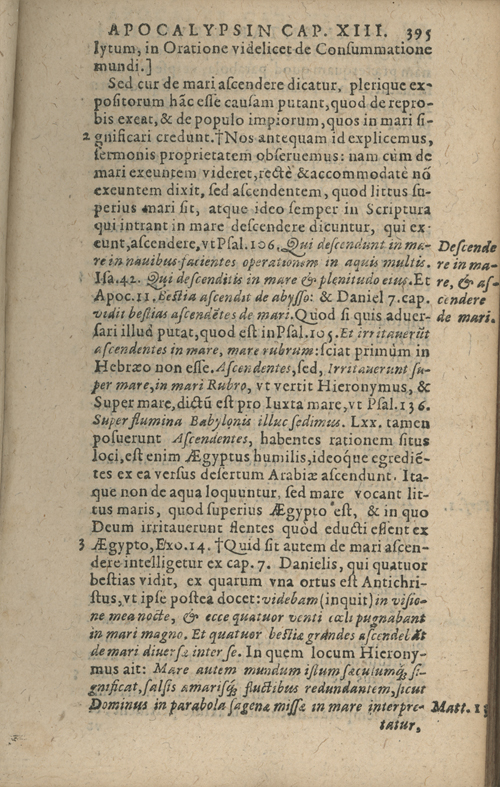 APOCALYPSIN CAP. XIII. 395
lytum, in Oratione videlicet de Consummatione
mundi.]
Sed cur de mari ascendere dicatur, plerique ex-
positorum hãc esse causam putant, quod de repro-
bis exeat, & de populo impiorum, quos in mari si-
2 gnificari credunt. †Nos antequam id explicemus,
sermonis proprietatem obseruemus: nam cùm de
mari exeuntem videret, rectè & accommodatè nõ
exeuntem dixit, sed ascendentem, quod littus su-
perius mari sit, atque ideo semper in Scriptura
qui intrant in mare descendere dicuntur, qui ex-
eunt, ascendere, vt Psal. 106. Qui descendunt in ma-
re in nauibus facientes operationem in aquis multis.
Isa. 42. Qui descenditis in mare & plenitudo eius. Et
Apoc. 11. Bestia ascendit de abysso: & Daniel 7. cap.
vidit bestias ascendẽtes de mari. Quòd si quis aduer-
sari illud putat, quod est in Psal. 105. Et irritauerũt
ascendentes in mare, mare rubrum: sciat primùm in
Hebræo non esse. Ascendentes, sed, Irritauerunt su-
per mare, in mari Rubro, vt vertit Hieronymus, &
Super mare, dictũ est pro Iuxta mare, vt Psal. 136.
Super flumina Babylonis illuc sedimus. Lxx. tamen
posuerunt Ascendentes, habentes rationem situs
loci, est enim Ægyptus humilis, ideoque egrediẽ-
tes ex ea versus desertum Arabiæ ascendunt. Ita-
que non de aqua loquuntur, sed mare vocant lit-
tus maris, quod superius Ægypto est, & in quo
Deum irritauerunt flentes quòd educti essent ex
3 Ægypto, Exo. 14. †Quid sit autem de mari ascen-
dere intelligetur ex cap. 7. Danielis, qui quatuor
bestias vidit, ex quarum vna ortus est Antichri-
stus, vt ipse postea docet: videbam (inquit) in visio-
ne mea nocte, & ecce quatuor venti cæli pugnabant
in mari magno. Et quatuor bestiæ grandes ascendebãt
de mari diuersæ inter se. In quem locum Hierony-
mus ait: Mare autem mundum istum sæculumq́, si-
gnificat, salsis amarisq́, fluctibus redundantem, sicut
Dominus in parabola sagenæ missæ in mare interpre-
tatur,
Descende
re in ma-
re, & as-
cendere
de mari.
Matt. 13